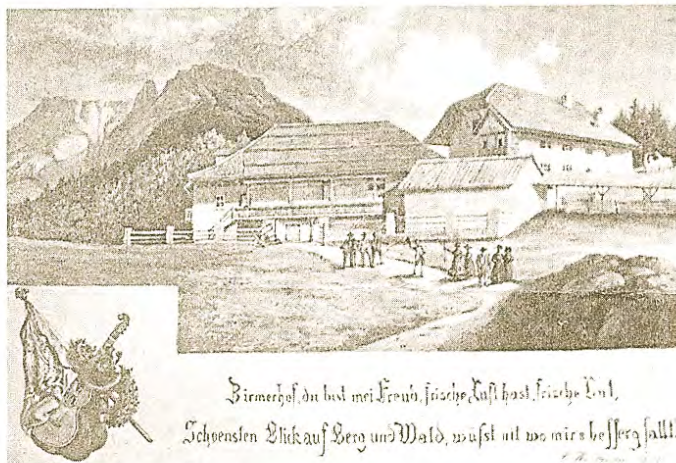 Zirmerhof, du bist mei Freud, frische Luft hast, frische Leut,
Schoensten Blick auf Berg und Wald, wüsst nit wo mirs besser g fallt!